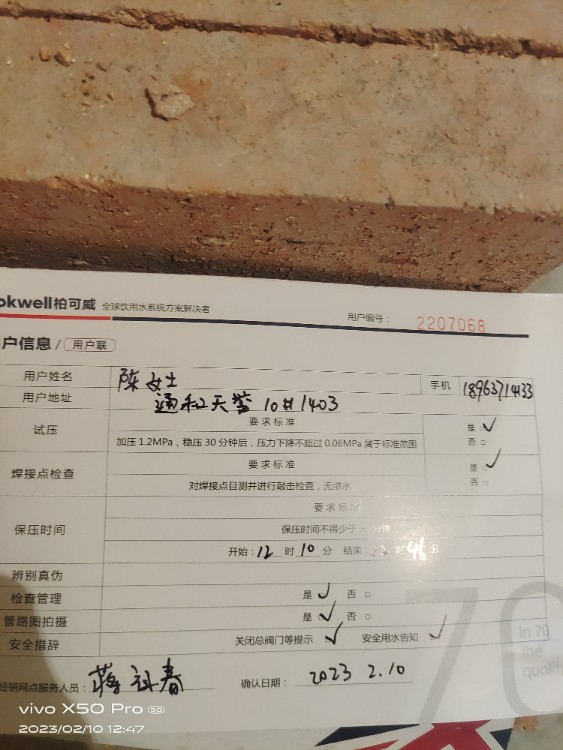 okwell柏可威 全球饮用水系统方案解决者 用户编号： 2207068
户信息 / 用户联
用户姓名 陈女士 手机 18963714133
用户地址 通和天誉 10#1403
试压 要求标准 是 ✓
加压1.2MPa，稳压30分钟后，压力下降不超过0.06MPa 属于标准范围 否 □
焊接点检查 要求标准 是 ✓
对焊接点目测并进行敲击检查，无渗水 否 □
保压时间 要求标准
保压时间不得少于 分钟
开始：12 时 10 分 结束： 时 46 分
辨别真伪
检查管理 是 ✓ 否 □
管路图拍摄 是 ✓ 否 □
安全措辞 关闭总阀门等提示 ✓ 安全用水告知 ✓
经销网点服务人员： 蒋 春 确认日期： 2023 2.10
70
In 70
the
quality
vivo X50 Pro 5G
2023/02/10 12:47